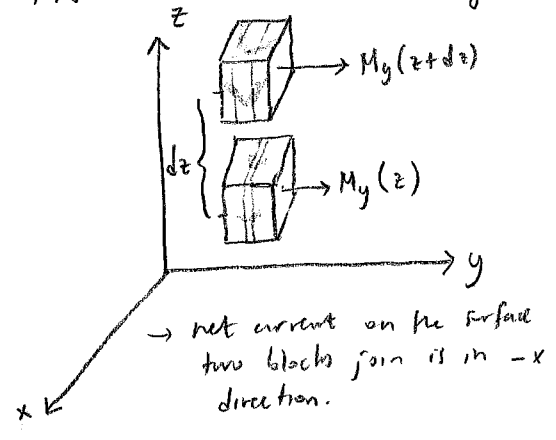 z
My(z+dz)
dz
My(z)
y
→ net current on the surface
two blocks join is in -x
direction.
x